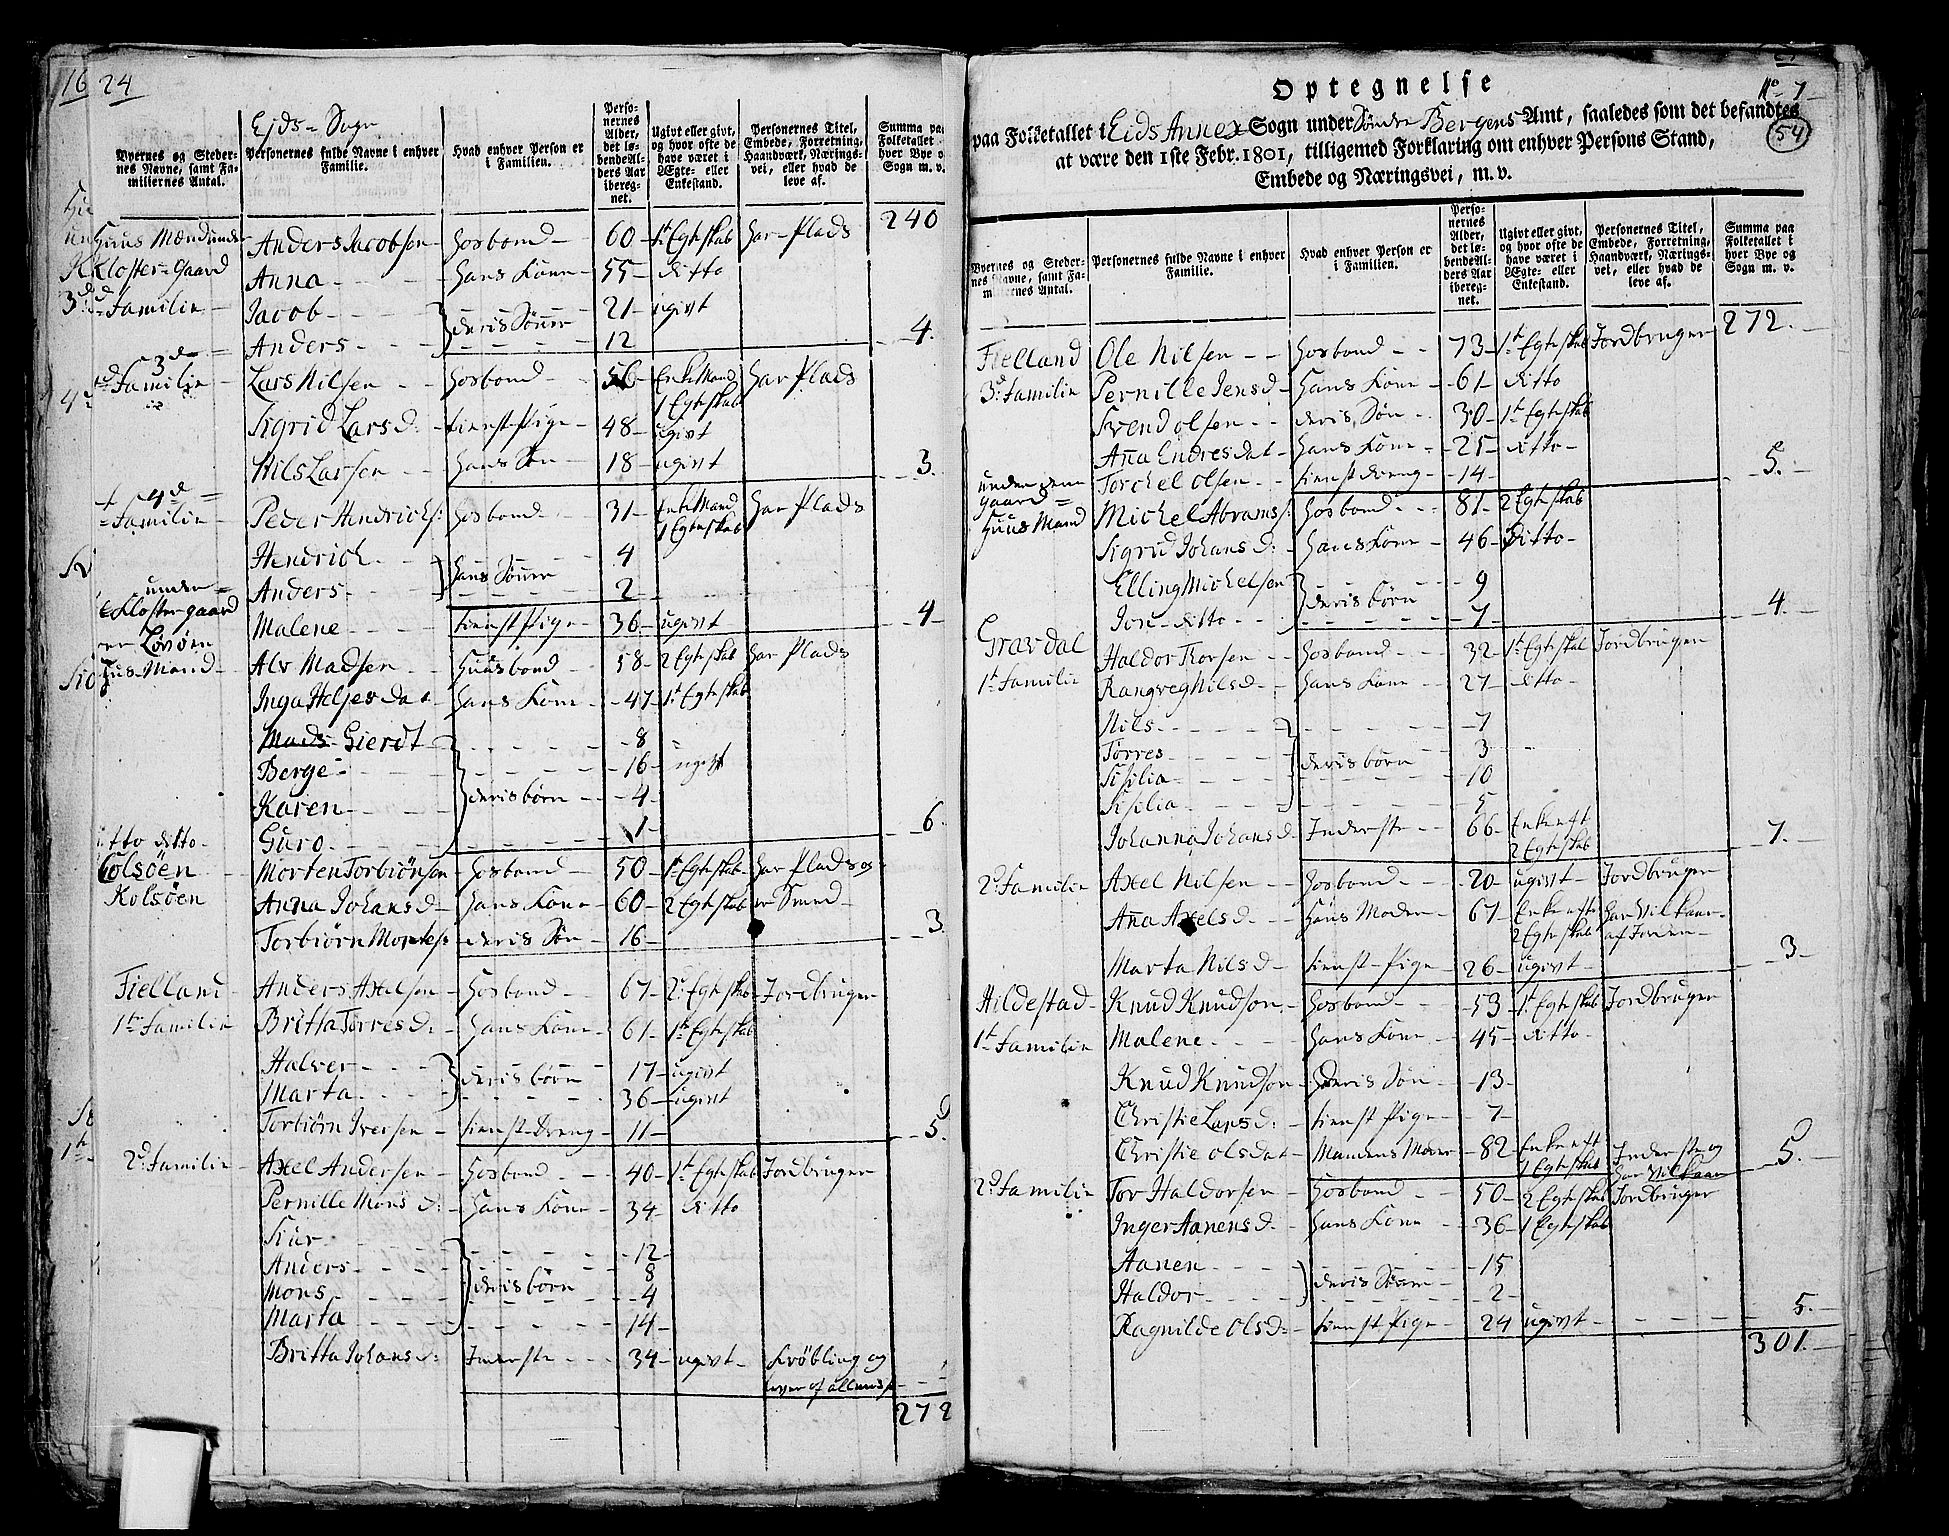 16 24
Ejds Sogn
Byernes og Steder-
nes Navne, samt Fa-
miliernes Antal.
Personernes fulde Navne i enhver
Familie.
Hvad enhver Person er
i Familien.
Perso-
nernes
Alder,
det lø-
bendeAl-
ders Aar
ibereg-
net.
Ugivt eller givt,
og hvor ofte de
have været i
Ægte- eller
Enkestand.
Personernes Titel,
Embede, Forretning,
Haandværk, Nærings-
vei, eller hvad de
leve af.
Summa paa
Folketallet i
hver Bye og
Sogn m. v.
240
Huus Mænd under Anders Jacobsen Hosbond 60 1t Egteskab Har Plads
Kloster Gaard Anna Hans Kone 55 ditto
3de Familie Jacob deris Sønner 21 ugivt
Anders 12 4.
3de Familie Lars Nilsen Hosbond 56 EnkeMand Har Plads
1 Egteskab
Sigrid Larsd: tienst Pige 48 ugivt
Nils Larsen Hans Søn 18 ugivt 3.
4de
Familie Peder Hendrichs: Hosbond 31 EnkeMand Har Plads
1 Egteskab
Hendrich Hans Sønner 4
Anders 2
under
Klostergaard Malene tienst Pige 36 ugivt 4
Løvøen
Huus Mand Alv Madsen Huusbond 58 2 Egteskab Har Plads
Inga Heljesdat Hans Kone 47 1t Egteskab
Mads Gierdt 8
Berge 16 ugivt
Karen deris børn 4
Guro 1 6.
ditto ditto
Colsöen Morten Torbiönsen Hosbond 50 1t Egteskab Har Plads og
Kolsöen Anna Johansd Hans Kone 60 2 Egteskab er Smed
Torbiörn Mortens: deris Søn 16 3.
Fielland Anders Axelsen Hosbond 67 2t Egteskab Jordbruger
1te Familie Britta Torresd: Hans Kone 61 1t Egteskab
Halver deris børn 17 ugivt
Marta 36 ugivt
Torbiörn Iversen tienst Dreng 11 5.
2d Familie Axel Andersen Hosbond 40 1t Egteskab Jordbruger
Pernille Monsd: Hans Kone 34 ditto
Siur 12
Anders deris børn 8
Mons 4
Marta 14
Britta Johansd: Inderste 34 ugivt Krøbling og
lever af allmis:
272
Optegnelse No 7
paa Folketallet i Eids Annex Sogn under Søndre Bergens Amt, saaledes som det befandtes
54
at være den 1ste Febr. 1801, tilligemed Forklaring om enhver Persons Stand,
Embede og Næringsvei, m. v.
Byernes og Steder-
nes Navne, samt Fa-
miliernes Antal.
Personernes fulde Navne i enhver
Familie.
Hvad enhver Person er
i Familien.
Perso-
nernes
Alder,
det lø-
bendeAl-
ders Aar
ibereg-
net.
Ugivt eller givt,
og hvor ofte de
have været i
Ægte- eller
Enkestand.
Personernes Titel,
Embede, Forretning,
Haandværk, Nærings-
vei, eller hvad de
leve af.
Summa paa
Folketallet i
hver Bye og
Sogn m. v.
272.
Fielland Ole Nilsen Hosbond 73 1t Egteskab Jordbruger
3d Familie Pernille Jensd Hans Kone 61 ditto
Svend olsen deris Søn 30 1t Egteskab
Anna Endresdat Hans Kone 25 ditto
Torchel olsen tienst dreng 14 5.
under
gaard
Huus Mand Michel Abrams: Hosbond 81 2 Egteskab
Sigrid Johansd: Hans Kone 46 Ditto
Elling Michelsen deris børn 9
Jon ditto 7 4.
Gravdal Haldor Torsen Hosbond 32 1t Egteskab Jordbruger
1t Familie Rangveg Nilsd Hans Kone 27 ditto
Nils 7
Torres deris børn 3
Sisilia 10
Sisilia 5
Johanna Johansd: Inderste 66 Enkeeft 7.
2 Egteskab
2d Familie Axel Nilsen Hosbond 20 ugivt Jordbruger
Ana Axelsd. Hans Moder 67 Enkeeft Har Vilkaar
2 Egteskab af Jorden
Marta Nilsd tienst Pige 26 ugivt 3
Hildestad Knud Knudson Hosbond 53 1t Egteskab Jordbruger
1t Familie Malene Hans Kone 45 ditto
Knud Knudson Deris Søn 13
Christie Larsd: tienst Pige 7
Christie olsdat Mandens Moder 82 Enkeeft Inderste og 5.
1 Egteskab har Vilkaar
2d Familie Tor Haldorsen Hosbond 50 2 Egteskab Jordbruger
Inger Aanensd. Hans Kone 36 1 Egteskab
Aanen deris Sønner 15
Haldor 2
Ragnilde olsd: tienst Pige 24 ugivt 5.
301.